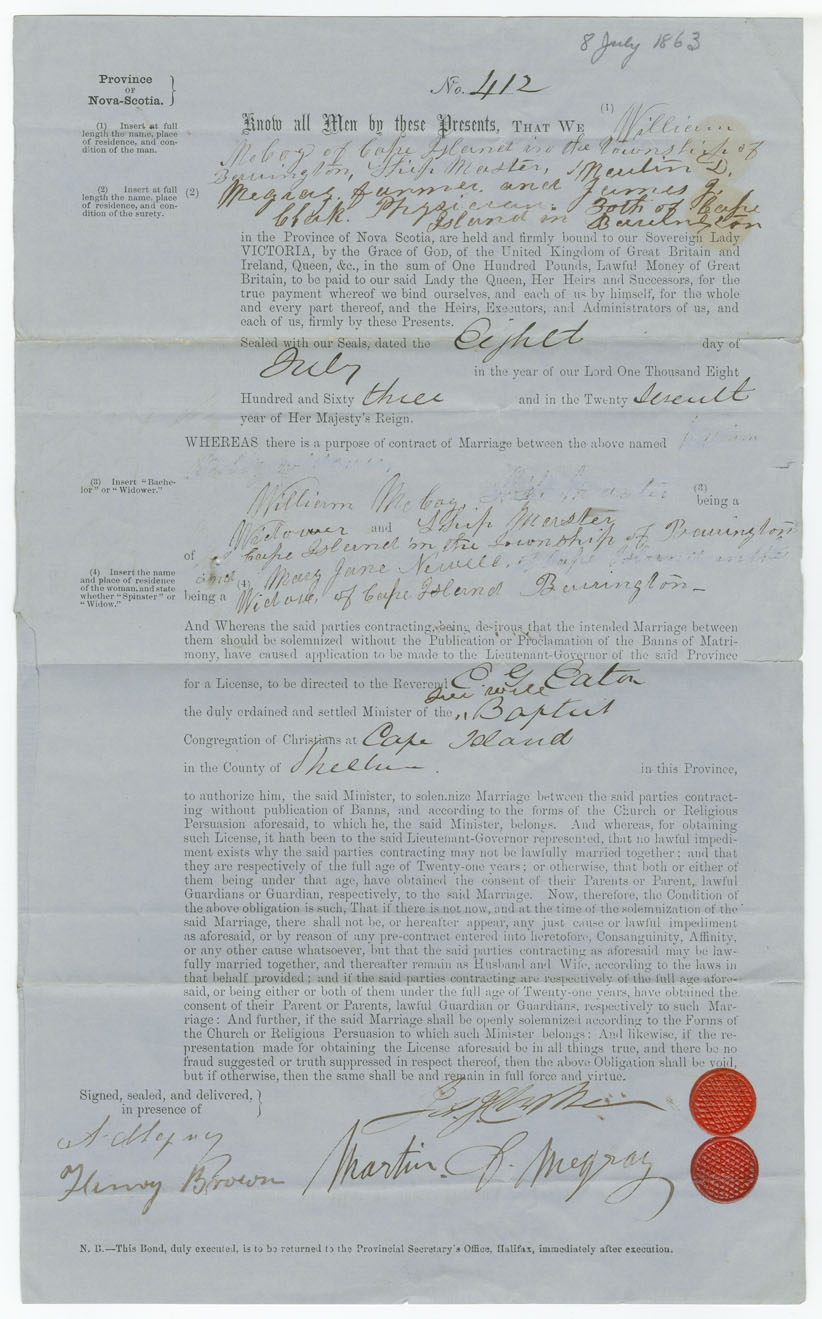 8 July 1863
Province
OF
Nova-Scotia.
No. 412
(1) Insert at full
length the name, place
of residence, and con-
dition of the man.
Know all Men by these Presents, THAT WE (1) William
McCoy of Cape Island in the Township of
Barrington, Ship Master, Martin D.
(2) Insert at full
length the name, place
of residence, and con-
dition of the surety.
(2) Megray, farmer and James
Physician. Both of Cape
Island in Barrington
in the Province of Nova Scotia, are held and firmly bound to our Sovereign Lady
VICTORIA, by the Grace of GOD, of the United Kingdom of Great Britain and
Ireland, Queen, &c., in the sum of One Hundred Pounds, Lawful Money of Great
Britain, to be paid to our said Lady the Queen, Her Heirs and Successors, for the
true payment whereof we bind ourselves, and each of us by himself, for the whole
and every part thereof, and the Heirs, Executors, and Administrators of us, and
each of us, firmly by these Presents.
Sealed with our Seals, dated the Eight day of
July in the year of our Lord One Thousand Eight
Hundred and Sixty three and in the Twenty
year of Her Majesty's Reign.
WHEREAS there is a purpose of contract of Marriage between the above named William
(3) Insert "Bache-
lor" or "Widower."
William McCoy (3) being a
Widower and Ship Master
of Cape Island in the Township of Barrington
(4) Insert the name
and place of residence
of the woman, and state
whether "Spinster" or
"Widow."
and Mary Jane Newell
being a (4) Widow, of Cape Island Barrington
And Whereas the said parties contracting, being desirous that the intended Marriage between
them should be solemnized without the Publication or Proclamation of the Banns of Matri-
mony, have caused application to be made to the Lieutenant-Governor of the said Province
for a License, to be directed to the Reverend C G Eaton
the duly ordained and settled Minister of the free will " Baptist
Congregation of Christians at Cape Island
in the County of Shelburne in this Province,
to authorize him, the said Minister, to solemnize Marriage between the said parties contract-
ing without publication of Banns, and according to the forms of the Church or Religious
Persuasion aforesaid, to which he, the said Minister, belongs. And whereas, for obtaining
such License, it hath been to the said Lieutenant-Governor represented, that no lawful impedi-
ment exists why the said parties contracting may not be lawfully married together; and that
they are respectively of the full age of Twenty-one years; or otherwise, that both or either of
them being under that age, have obtained the consent of their Parents or Parent, lawful
Guardians or Guardian, respectively, to the said Marriage. Now, therefore, the Condition of
the above obligation is such, That if there is not now, and at the time of the solemnization of the
said Marriage, there shall not be, or hereafter appear, any just cause or lawful impediment
as aforesaid, or by reason of any pre-contract entered into heretofore, Consanguinity, Affinity,
or any other cause whatsoever, but that the said parties contracting as aforesaid may be law-
fully married together, and thereafter remain as Husband and Wife, according to the laws in
that behalf provided; and if the said parties contracting are respectively of the full age afore-
said, or being either or both of them under the full age of Twenty-one years, have obtained the
consent of their Parent or Parents, lawful Guardian or Guardians, respectively to such Mar-
riage: And further, if the said Marriage shall be openly solemnized according to the Forms of
the Church or Religious Persuasion to which such Minister belongs: And likewise, if the re-
presentation made for obtaining the License aforesaid be in all things true, and there be no
fraud suggested or truth suppressed in respect thereof, then the above Obligation shall be void,
but if otherwise, then the same shall be and remain in full force and virtue.
Signed, sealed, and delivered,
in presence of
Henry Brown
Martin. D. Megray
N. B.—This Bond, duly executed, is to be returned to the Provincial Secretary's Office, Halifax, immediately after execution.